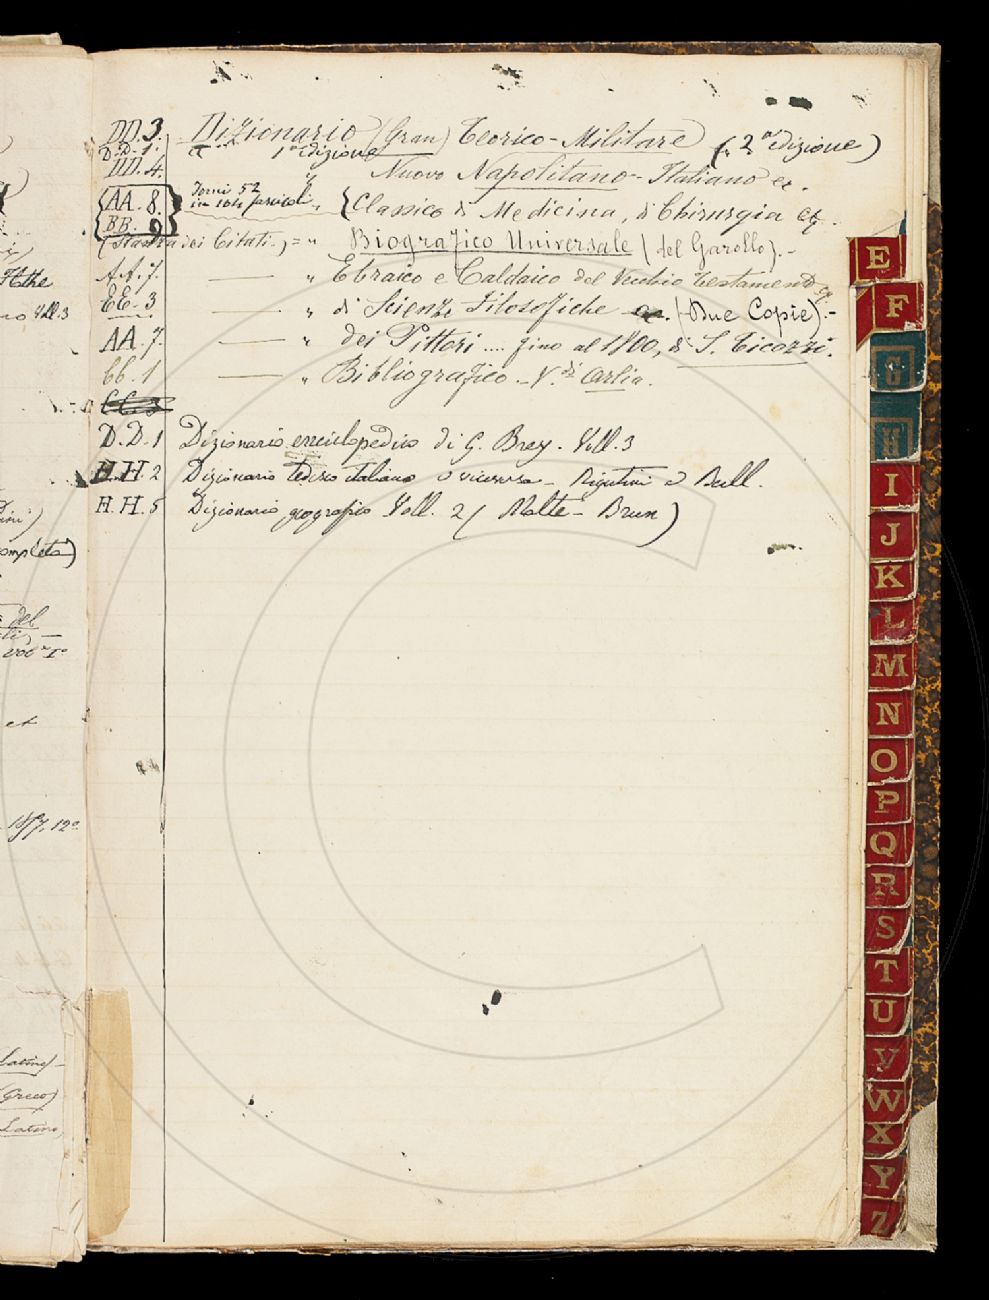 DD.3. Dizionario (Gran) Teorico-Militare (2a edizione)
D.D.1. 1a edizione
DD.4. " Nuovo Napolitano-Italiano
AA.8. Tomi 52 in fascicoli " {Classico di Medicina, di Chirurgia
BB.9
(Stanza dei Citati.) = " Biografico Universale (del Garollo).-
AA.7. — " Ebraico e Caldaico del Vecchio Testamento
EE.3 — " di Scienze Filosofiche (Due Copie).-
AA.7. — " dei Pittori .... fino al 1800, di S. Ticozzi.
bb.1 — " Bibliografico - V.di Arlia.
D.D.1 Dizionario enciclopedico di G. Brey. Voll. 3
H.H.2 Dizionario tedesco italiano e viceversa - Rigutini e Bull.
H.H.5 Dizionario geografico Voll. 2 (Malte-Brun)
Voll.3
ompleta)
del
et
1857, 12o
Latino) -
(Greco)
Latino,
E
F
G
H
I
J
K
L
M
N
O
P
Q
R
S
T
U
V
W
X
Y
Z